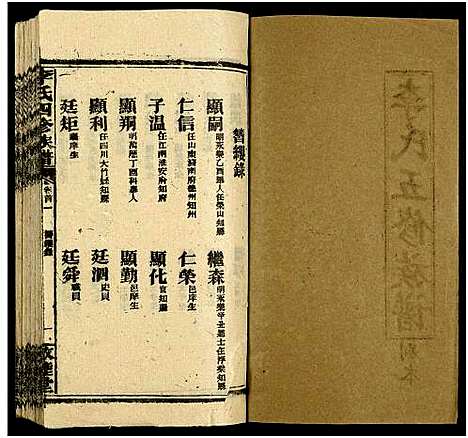 李氏五修族譜
列本
簪纓錄
顯嗣 明永樂乙酉舉人任
知縣
仁信 任山東濟南府德州知州
子温 任江南淮安府知府
顯翔 明萬歷丁酉科舉人
顯利 任四川大竹縣知縣
廷矩 庠生
繼森 明永樂辛丑進士任浮梁知縣
仁榮 邑庠生
顯化 官知縣
顯勤 邑庠生
廷泗 吏員
廷舜 職員
李氏四修族譜
卷首一
簪纓錄
一